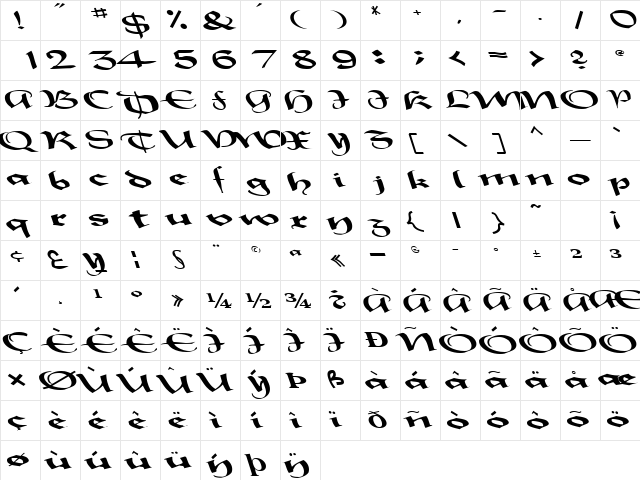 ! " # $ % & ' ( ) * + , - . / 0
1 2 3 4 5 6 7 8 9 : ; < = > ? @
A B C D E F G H I J K L M N O P
Q R S T U V W X Y Z [ \ ] ^ _ `
a b c d e f g h i j k l m n o p
q r s t u v w x y z { | } ~ ¡
¢ £ ¥ ¦ § ¨ © ª « ¬ ® ¯ ° ± ² ³
´ · ¹ º » ¼ ½ ¾ ¿ À Á Â Ã Ä Å Æ
Ç È É Ê Ë Ì Í Î Ï Ð Ñ Ò Ó Ô Õ Ö
× Ø Ù Ú Û Ü Ý Þ ß à á â ã ä å æ
ç è é ê ë ì í î ï ð ñ ò ó ô õ ö
ø ù ú û ü ý þ ÿ